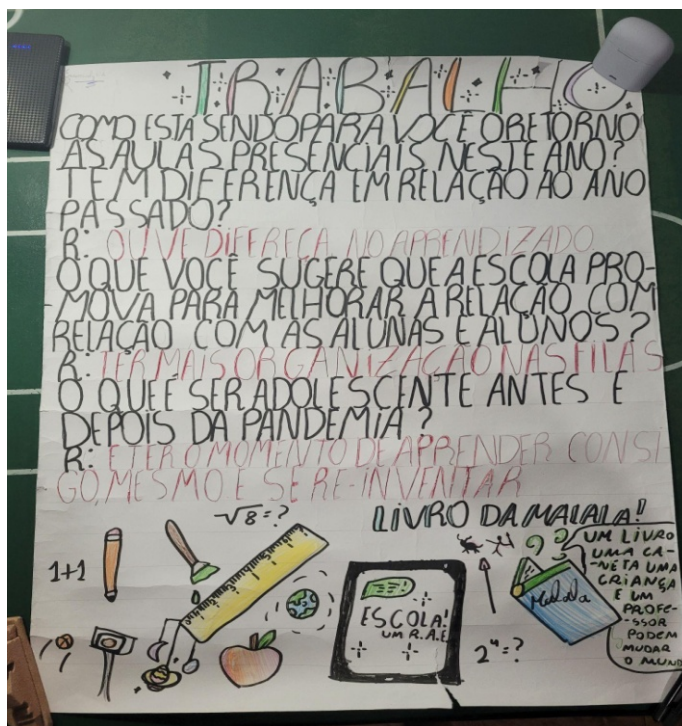 TRABALHO
COMO ESTA SENDO PARA VOCÊ O RETORNO
AS AULAS PRESENCIAIS NESTE ANO?
TEM DIFERENÇA EM RELAÇÃO AO ANO
PASSADO?
R: OUVE DIFFREÇA NO APRENDIZADO
O QUE VOCÊ SUGERE QUE A ESCOLA PRO-
MOVA PARA MELHORAR A RELAÇÃO COM
RELAÇÃO COM AS ALUNAS E ALUNOS?
R: TER MAIS ORGANIZAÇÃO NAS FILAS
O QUE É SER ADOLESCENTE ANTES E
DEPOIS DA PANDEMIA?
R: E TER O MOMENTO DE APRENDER CONSI-
GO, MESMO E SE RE-INVENTAR
√8=?
LIVRO DA MALALA!
1+1
ESCOLA!
UM R.A.E
2⁴=?
Malala
UM LIVRO
UMA CA-
-NETA UMA
CRIANÇA
E UM
PROFE-
-SSOR
PODEM
MUDAR
O MUND